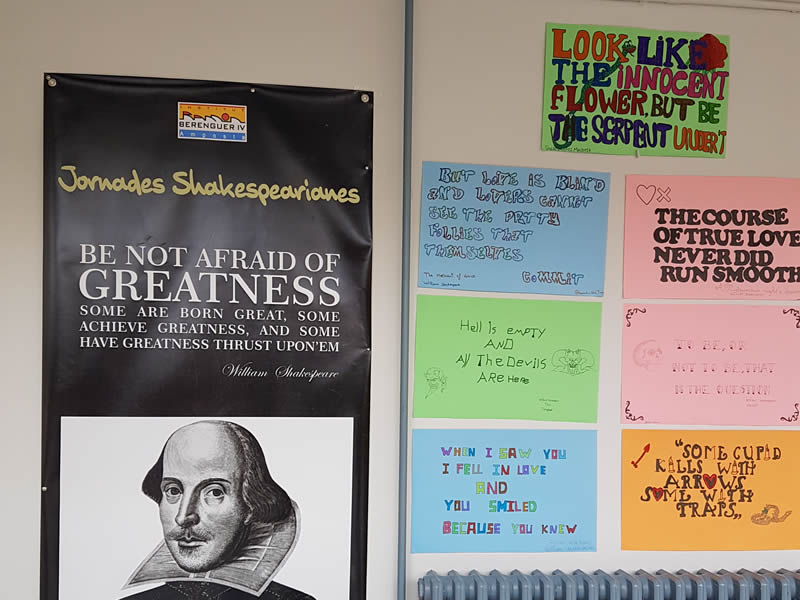 INSTITUT
BERENGUER IV
Amposta
Jornades Shakespearianes
BE NOT AFRAID OF
GREATNESS
SOME ARE BORN GREAT, SOME
ACHIEVE GREATNESS, AND SOME
HAVE GREATNESS THRUST UPON'EM
William Shakespeare
LOOK LIKE
THE INNOCENT
FLOWER, BUT BE
THE SERPENT UNDER'T
BUT LOVE IS BLIND
AND LOVERS CANNOT
SEE THE PETTY
FOLLIES THAT
THEMSELVES
COMMIT
The merchant of Venice
William Shakespeare
THE COURSE
OF TRUE LOVE
NEVER DID
RUN SMOOTH
Hell Is EMPTY
AND
All The DEVILS
ARE HERE
TO BE, OR
NOT TO BE, THAT
IS THE QUESTION
WHEN I SAW YOU
I FELL IN LOVE
AND
YOU SMILED
BECAUSE YOU KNEW
"SOME CUPID
KILLS WITH
ARROWS
SOME WITH
TRAPS"